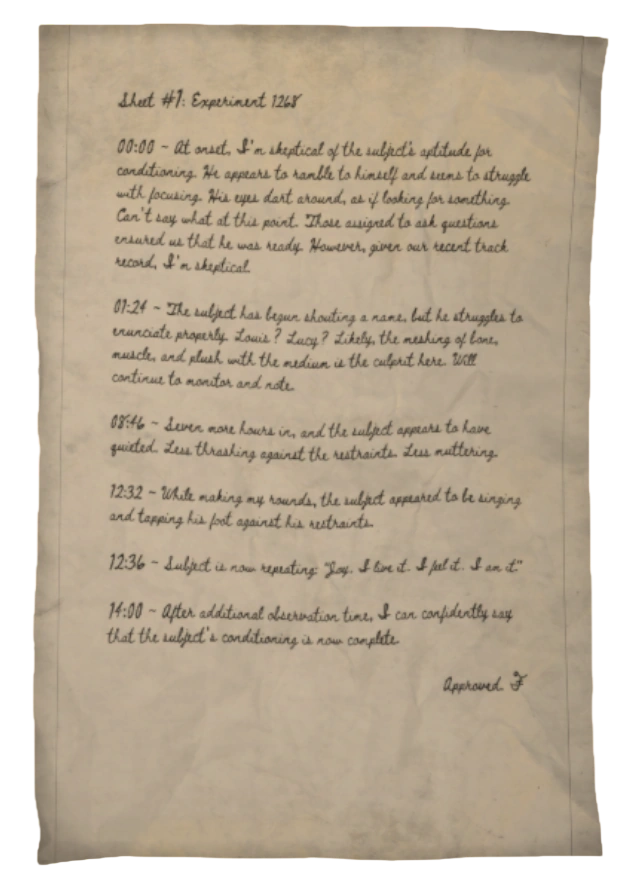 Sheet #1: Experiment 1268
00:00 ~ At onset, I'm skeptical of the subject's aptitude for
conditioning. He appears to ramble to himself and seems to struggle
with focusing. His eyes dart around, as if looking for something.
Can't say what at this point. Those assigned to ask questions
ensured us that he was ready. However, given our recent track
record, I'm skeptical.
01:24 ~ The subject has begun shouting a name, but he struggles to
enunciate properly. Louis? Lucy? Likely, the meshing of bone,
muscle, and plush with the medium is the culprit here. Will
continue to monitor and note.
08:46 ~ Seven more hours in, and the subject appears to have
quieted. Less thrashing against the restraints. Less muttering.
12:32 ~ While making my rounds, the subject appeared to be singing
and tapping his foot against his restraints.
12:36 ~ Subject is now repeating: "Joy. I live it. I feel it. I am it."
14:00 ~ After additional observation time, I can confidently say
that the subject's conditioning is now complete.
Approved. F